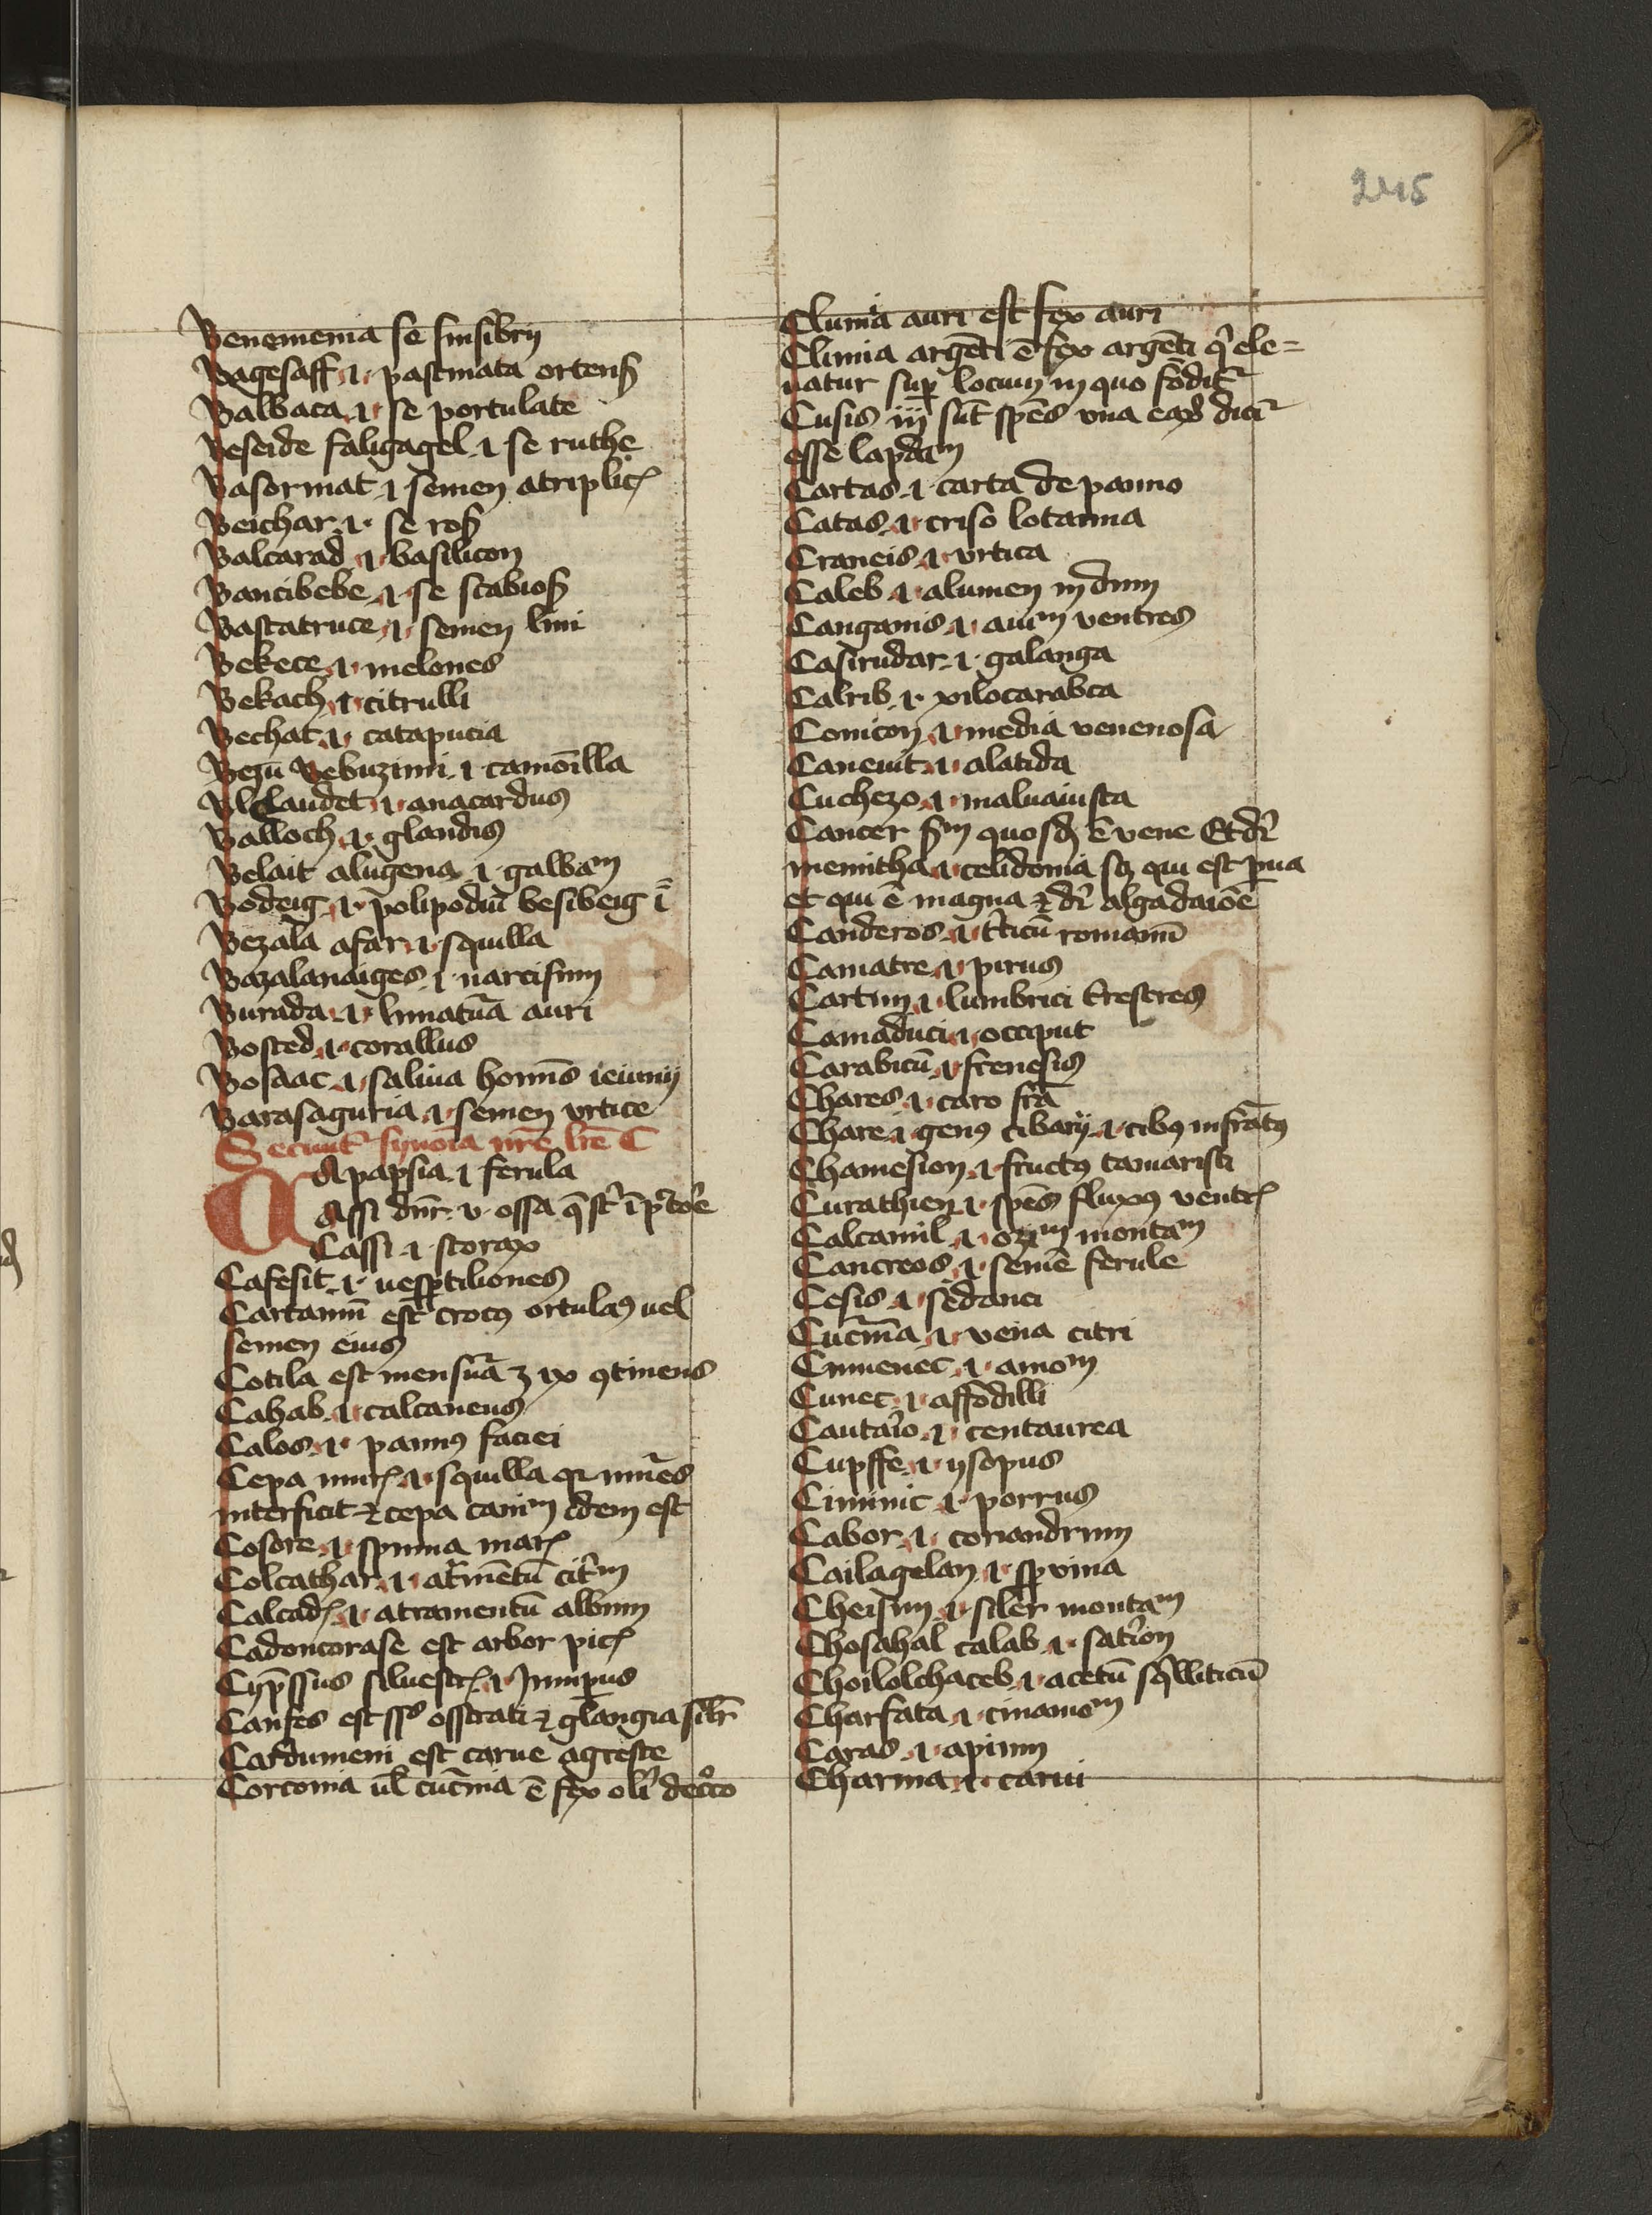 245
Benemenia se sinsibrij
Bagesaff .i. pastinata ortens
Balbaca .i. se portulate
Beseide faligagel .i. se ruthe
Basormat .i. semen atriplic
Beichar .i. se ros
Balcarad .i. basilicon
Bancibebe .i. se scabios
Bastatruce .i. semen lini
Bekece .i. melones
Bekach .i. citrulli
Bechat .i. catapucia
Bezū Bebuzimi .i. camōilla
Blclaudet .i. anacardus
Balloch .i. glandis
Belait alugena .i. galbaᵐ
Bodeig .i. polipodiū besibeig ī
Bezala afar .i. squilla
Bazalanaiges .i. narcisum
Burada .i. limatūa auri
Bosted .i. corallus
Bosaac .i. saliua homīs ieiunij
Barasaguria .i. semen vrtice
Secunt̄ synoīa nrē lrē C
Apapsia .i. ferula
Assi dnr̄ .v. ossa q̄ st̄ ī pctoe
Cassi .i. storax
Cafesit .i. uespertiliones
Cartamū est crocꝰ ortulaꝰ uel
semen eius
Cotila est mensūa ʒ ix ꝯtinens
Cahab .i. calcaneus
Calos .i. pannꝰ faciei
Cepa mur .i. squilla qr mūres
interficit et cepa caniᵐ idem est
Cosore .i. spuma mar
Colcathar .i. at̄mentū cit̄m
Calcad .i. atramentū album
Cadoncorase est arbor pic
Cyp̄ssus siluestr .i. Juniperus
Canfes est sps osserati et glangia silr̄
Cardumeni est carue agreste
Corconia ul̄ cuc̄nia ē fex oli decco
Clumia auri est fex auri
Climia argēti ē fex argēti q̄ ele=
uatur super locum in quo fodit̄
Cusis iij sūt spēs vna eaꝝ dici
esse lapdaᵐ
Cartas .i. carta de panno
Catas .i. criso lotanna
Craneis .i. vrtica
Caleb .i. alumen indum
Cangamis .i. auiᵐ ventres
Casirudar .i. galanga
Calrib .i. xilocarabca
Conicon .i. media venenosa
Caneuit .i. alatida
Cuchezo .i. maluauista
Cancer sᵐ quosdā ē vene Et dr̄
memitha .i. celidonia sꝫ qui est pua
et qui ē magna et dr̄ algadaiōē
Canderos .i. t̄ticū romanū
Camatre .i. pirus
Cartim .i. lumbrici t̄restres
Camaduci .i. occiput
Carabitū .i. frenesis
Chares .i. caro frā
Chare .i. genꝰ cibarij .i. cibꝰ infratꝰ
Chamesion .i. fructꝰ tamarisci
Curathien .i. spēs fluxꝰ ventr
Calcamil .i. oziᵐ montaᵐ
Cancreos .i. semē ferule
Cesis .i. sedanei
Cuc̄ma .i. vena citri
Cumenec .i. amoᵐ
Cunec .i. affodilli
Cautario .i. centaurea
Cupffe .i. ysopus
Ciminic .i. porrus
Cabor .i. coriandrum
Cailagelan .i. sp vina
Cheisim .i. siler montaᵐ
Chosahal calab .i. satiron
Choilolchaceb .i. acetū sq̄lliticū
Charfata .i. cinamoᵐ
Caras .i. apium
Charma .i. carui